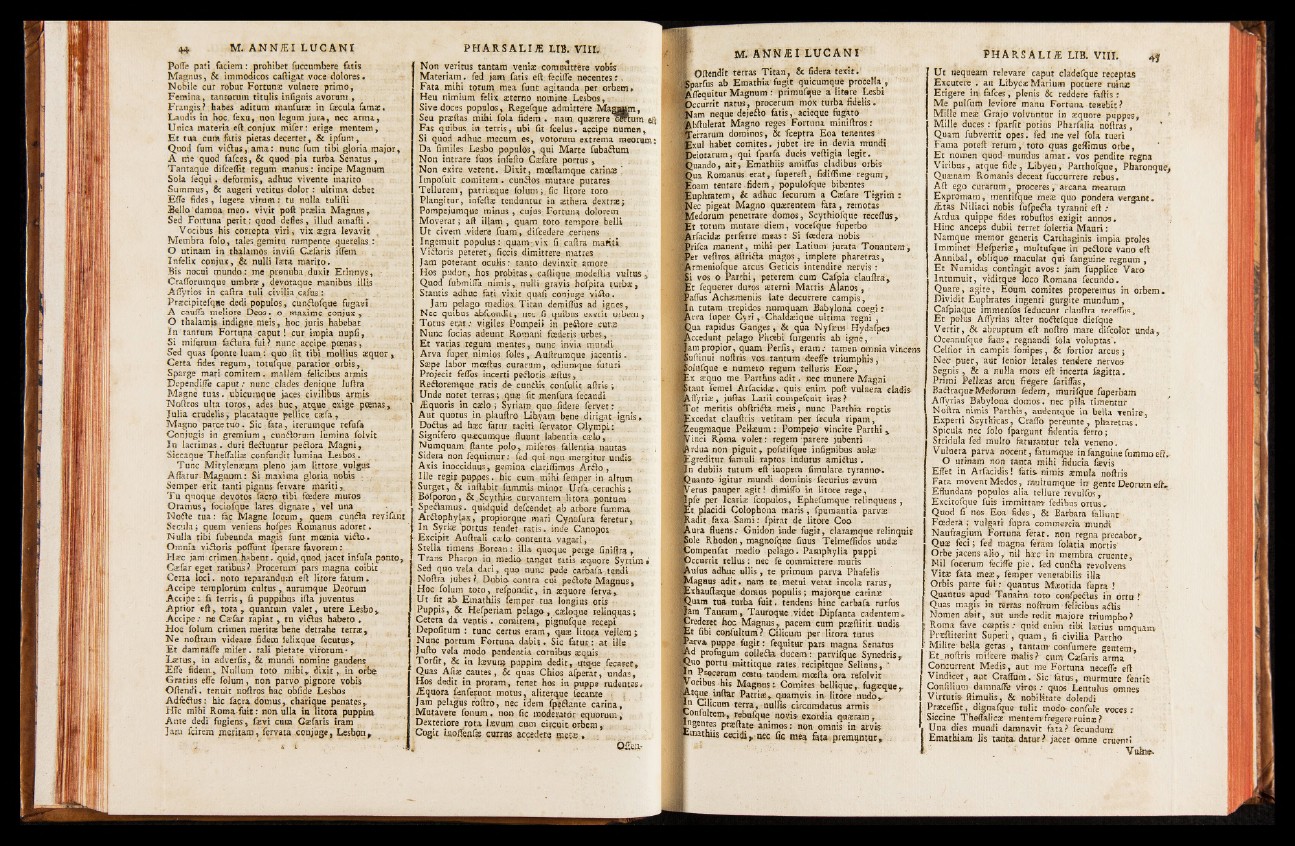 44 M. ANNÆI LUCANI
Posse pati faciem: prohibet succumbere fatis
Magnus, & immodicos castigat voce dolores.
Nobile cur robur Fortunæ vulnere primo,
Femina, tantorum titulis insignis avorum,
Frangis? habes aditum mansuræ in secula famæ.
Laudis in hoc sexu, non legum jura, nec arma,
Unica materia est conjux miser: erige mentem,
Et tua cum fatis pietas decertet, & ipsum,
Quod sum victus, ama: nunc sum tibi gloria major,
A me quod fasces, & quod pia turba Senatus,
Tantaque discessit regum manus: incipe Magnum
Sola sequi. deformis, adhuc vivente marito
Summus, & augeri vetitus dolor: ultima debet
Esse fides, lugere virum: tu nulla tulisti
Bello damna meo. vivit post prælia Magnus,
Sed Fortuna perit: quod defles, illud amasti.
Vocibus his correpta viri, vix ægra levavit
Membra solo, tales gemitu rumpente querelas:
O utinam in thalamos invisi Cæsaris issem
Infelix conjux, & nulli læta marito.
Bis nocui mundo: me pronuba duxit Erinnys,
Crassorumque umbræ, devotaque manibus illis
Assyrios in castra tuli civilia casus:
Præcipitesque dedi populos, cunctosque fugavi
A caussa meliore Deos. o maxime conjux,
O thalamis indigne meis, hoc juris habebat
In tantum Fortuna caput! cur impia nupsi,
Si miserum factura fui? nunc accipe pœnas,
Sed quas sponte luam: quo sit tibi mollius æquor,
Certa fides regum, totusque paratior orbis,
Sparge mari comitem. mallem felicibus armis
Dependisse caput: nunc clades denique lustra
Magne tuas. ubicumque jaces civilibus armis
Nostros ulta toros, ades huc, atque exige pœnas,
Julia crudelis, placataque pellice cæsa,
Magno parce tuo. Sic fata, iterumque refusa
Conjugis in gremium, cunctorum lumina solvit
In lacrimas. duri flectuntur pectora Magni,
Siccaque Thessaliæ confundit lumina Lesbos.
Tunc Mitylenæum pleno jam littore vulgus
Affatur Magnum: Si maxima gloria nobis
Semper erit tanti pignus servare mariti,
Tu quoque devotos sacro tibi fœdere muros
Oramus, sociosque lares dignare, vel una
Nocte tua: fac Magne locum, quem cuncta revisant
Secula; quem veniens hospes Romanus adoret.
Nulla tibi subeunda magis sunt mœnia victo.
Omnia victoris possunt sperare favorem:
Hæc jam crimen habent. quid, quod jacet insula ponto,
Cæsar eget ratibus? Procerum pars magna coibit
Certa loci. noto reparandum est litore fatum.
Accipe templorum cultus, aurumque Deorum
Accipe: si terris, si puppibus ista juventus
Aptior est, tota, quantum valet, utere Lesbo,
Accipe: ne Cæsar rapiat, tu victus habeto.
Hoc solum crimen meritæ bene detrahe terræ,
Ne nostram videare fidem felixque secutus,
Et damnasse miser. tali pietate virorum
Lætus, in adversis, & mundi nomine gaudens
Esse fidem, Nullum toto mihi, dixit, in orbe
Gratius esse solum, non parvo pignore vobis
Ostendi. tenuit nostros hac obside Lesbos
Adfectus: hic sacra domus, charique penates,
Hic mihi Roma fuit: non ulla in litora puppim
Ante dedi fugiens, sævi cum Cæsaris iram
Jam scirem meritam, servata conjuge, Lesbon,
PHARSALIÆ LIB. VIII.
Non veritus tantam veniæ committere vobis
Materiam. sed jam satis est fecisse nocentes:
Fata mihi totum mea sunt agitanda per orbem,
Heu nimium felix æterno nomine Lesbos,
Sive doces populos, Regesque admittere Magnum,
Seu præstas mihi sola fidem. nam quærere certum est
Fas quibus in terris, ubi sit scelus. accipe numen,
Si quod adhuc mecum es, votorum extrema meorum:
Da similes Lesbo populos, qui Marte subactum
Non intrare suos infesto Cæsare portus,
Non exire vetent. Dixit, mœstamque carinæ
Imposuit comitem. cunctos mutare putares
Tellurem, patriæque solum; sic litore toto
Plangitur, infestæ tenduntur in æthera dextræ;
Pompejumque minus, cujus Fortuna dolorem
Moverat; ast illam, quam toto tempore belli
Ut civem videre suam, discedere cernens
Ingemuit populus: quam vix si castra mariti
Victoris peteret, siccis dimittere matres
Jam poterant oculis: tanto devinxit amore
Hos pudor, hos probitas, castique modestia vultus,
Quod submissa nimis, nulli gravis hospita turbæ,
Stantis adhuc fati vixit quasi conjuge victo.
Jam pelago medios Titan demissus ad ignes,
Nec quibus abscondit, nec si quibus exerit orbem,
Totus erat: vigiles Pompeii in pectore curæ
Nunc socias adeunt Romani fœderis urbes,
Et varias regum mentes, nunc invia mundi
Arva super nimios soles, Austrumque jacentis.
Sæpe labor mœstus curarum, odiumque futuri
Projecit fessos incerti pectoris æstus,
Rectoremque ratis de cunctis consulit astris;
Unde notet terras; quæ sit mensura secandi
Æquoris in cælo; Syriam quo sidere servet:
Aut quotus in plaustro Libyam bene dirigat ignis.
Doctus ad hæc fatur taciti servator Olympi:
Signifero quæcumque fluunt labentia cælo,
Numquam stante polo, miseros fallentia nautas
Sidera non sequimur: sed qui non mergitur undis
Axis inocciduus, gemina clarissimus Arcto,
Ille regit puppes. hic cum mihi semper in altum
Surget, & instabit summis minor Ursa ceruchis;
Bosporon, & Scythiæ curvantem litora pontum
Spectamus. quidquid descendet ab arbore summa
Arctophylax, propiorque mari Cynosura feretur,
In Syriæ portus tendet ratis. inde Canopos
Excipit Australi cælo contenta vagari,
Stella timens Borean: illa quoque perge sinistra,
Trans Pharon in medio tanget ratis æquore Syrtim.
Sed quo vela dari, quo nunc pede carbasa tendi
Nostra jubes? Dubio contra cui pectore Magnus,
Hoc solum toto, respondit, in æquore serva,
Ut sit ab Emathiis semper tua longius oris
Puppis, & Hesperiam pelago, cæloque relinquas;
Cetera da ventis. comitem, pignusque recepi
Depositum: tunc certus eram, quæ litora vellem;
Nunc portum Fortuna dabit. Sic fatur: at ille
Justo vela modo pendentia cornibus æquis
Torsit, & in lævum puppim dedit, utque secaret,
Quas Asiæ cautes, & quas Chios asperat, undas,
Hos dedit in proram, tenet hos in puppe rudentes.
Æquora senserunt motus, aliterque secante
Jam pelagus rostro, nec idem spectante carina,
Mutavere sonum. non sic moderator equorum,
Dexteriore rota lævum cum circuit orbem,
Cogit inoffensæ currus accedere metæ.
Osten-
M. ANNÆI LUCANI
Ostendit terras Titan, & sidera texit.
Sparsus ab Emathia fugit quicumque procella,
Assequitur Magnum: primusque a litore Lesbi
Occurrit natus, procerum mox turba fidelis.
Nam neque dejecto fatis, acieque fugato
Abstulerat Magno reges Fortuna ministros:
Terrarum dominos, & sceptra Eoa tenentes
Exul habet comites. jubet ire in devia mundi
Deiotarum, qui sparsa ducis vestigia legit.
Quando, ait, Emathiis amissus cladibus orbis
Qua Romanus erat, superest, fidissime regum,
Eoam tentare fidem, populosque bibentes
Euphratem, & adhuc securum a Cæsare Tigrim:
Nec pigeat Magno quærentem fata, remotas
Medorum penetrare domos, Scythiosque recessus,
Et totum mutare diem, vocesque superbo
Arsacidæ perferre meas: Si fœdera nobis
Prisca manent, mihi per Latium jurata Tonantem,
Per vestros astricta magos, implete pharetras,
Armeniosque arcus Geticis intendite nervis:
Si vos o Parthi, peterem cum Caspia claustra,
Et sequerer duros æterni Martis Alanos,
Passus Achæmeniis late decurrere campis,
In tutam trepidos numquam Babylona coegi:
Arva super Cyri, Chaldæique ultima regni,
Qua rapidus Ganges, & qua Nysæus Hydaspes
Accedunt pelago Phœbi surgentis ab igne,
Jam propior, quam Persis, eram: tamen omnia vincens
Sustinui nostris vos tantum deesse triumphis,
Solusque e numero regum telluris Eoæ,
Ex æquo me Parthus adit. nec munere Magni
Stant semel Arsacidæ, quis enim post vulnera cladis
Assyriæ, justas Latii compescuit iras?
Tot meritis obstricta meis, nunc Parthia ruptis
Excedat claustris vetitam per secula ripam,
Zeugmaque Pellæum: Pompejo vincite Parthi,
Vinci Roma volet: regem parere jubenti
Ardua non piguit, positisque insignibus aulæ
Egreditur famuli raptos indutus amictus.
In dubiis tutum est inopem simulare tyranno.
Quanto igitur mundi dominis securius ævum
Verus pauper agit! dimisso in litore rege,
Ipse per Icariæ scopulos, Ephesumque relinquens,
Et placidi Colophona maris, spumantia parvæ
Radit saxa Sami: spirat de litore Coo
Aura fluens: Guidon inde fugit, claramque relinquit
Sole Rhodon, magnosque sinus Telmessidos undæ
Compensat medio pelago. Pamphylia puppi
Occurrit tellus: nec se committere muris
Ausus adhuc ullis, te primum parva Phaselis
Magnus adit. nam te metui vetat incola rarus,
Exhaustæque domus populis; majorque carinæ
Quam tua turba fuit. tendens hinc carbasa rursus
Jam Taurum, Tauroque videt Dipsanta cadentem.
Crederet hoc Magnus, pacem cum præstitit undis
Et sibi consultum? Cilicum per litora tutus
Parva puppe fugit: sequitur pars magna Senatus
Ad profugum collecta ducem: parvisque Synedris,
Quo portu mittitque rates recipitque Selinus,
In Procerum cœtu tandem mœsta ora resolvit
Vocibus his Magnus: Comites bellique, fugæque,
Atque instar Patriæ, quamvis in litore nudo,
In Cilicum terra, nullis circumdatus armis
Consultem, rebusque novis exordia quæram,
Ingentes præstate animos: non omnis in arvis
Emathiis cecidi, nec sic mea fata premuntur,
PHARSALIÆ LIB. VIII. 45
Ut nequeam relevare caput cladesque receptas
Excutere. an Libycæ Marium potuere ruinæ
Erigere in fasces, plenis & reddere fastis:
Me pulsum leviore manu Fortuna tenebit?
Mille meæ Grajo volvuntur in æquore puppes,
Mille duces: sparsit potius Pharsalia nostras,
Quam subvertit opes. sed me vel sola tueri
Fama potest rerum, toto quas gessimus orbe,
Et nomen quod mundus amat. vos pendite regna
Viribus, atque fide, Libyen, Parthosque, Pharonque,
Quænam Romanis decent succurrere rebus.
Ast ego curarum, proceres, arcana mearum
Expromam, mentisque meæ quo pondera vergant.
Ætas Niliaci nobis suspecta tyranni est:
Ardua quippe fides robustos exigit annos.
Hinc anceps dubii terret solertia Mauri:
Namque memor generis Carthaginis impia proles
Imminet Hesperiæ, multusque in pectore vano est
Annibal, obliquo maculat qui sanguine regnum,
Et Numidas contingit avos: jam supplice Varo
Intumuit, viditque loco Romana secundo.
Quare, agite, Eoum comites properemus in orbem.
Dividit Euphrates ingenti gurgite mundum,
Caspiaque immensos seducunt claustra recessus,
Et polus Assyrias alter noctesque diesque
Vertit, & abruptum est nostro mare discolor unda,
Oceanusque suus, regnandi sola voluptas.
Celsior in campis sonipes, & fortior arcus;
Nec puer, aut senior letales tendere nervos
Segnis, & a nulla mors est incerta sagitta.
Primi Pellæas arcu fregere sarissas,
Bactraque Medorum sedem, murisque superbam
Assyrias Babylona domos. nec pila timentur
Nostra nimis Parthis, audentque in bella venire,
Experti Scythicas, Crasso pereunte, pharetras.
Spicula nec solo spargunt fidentia ferro;
Stridula sed multo saturantur tela veneno.
Vulnera parva nocent, fatumque in sanguine summo est.
O utinam non tanta mihi fiducia sævis
Esset in Arsacidis! fatis nimis æmula nostris
Fata movent Medos, multumque in gente Deorum est.
Effundam populos alia tellure revulsos,
Excitosque suis immittam sedibus ortus.
Quod si nos Eoa fides, & Barbara fallunt
Fœdera; vulgari supra commercia mundi
Naufragium Fortuna ferat. non regna precabor,
Quæ feci; sed magna feram solatia mortis
Orbe jacens alio, nil hæc in membra cruente,
Nil socerum fecisse pie. sed cuncta revolvens
Vitæ fata meæ, semper venerabilis illa
Orbis parte fui: quantus Mæotida supra!
Quantus apud Tanaim toto conspectus in ortu!
Quas magis in terras nostrum felicibus actis
Nomen abit, aut unde redit majore triumpho?
Roma fave cœptis: quid enim tibi lætius umquam
Præstiterint Superi, quam, si civilia Partho
Milite bella geras, tantam consumere gentem,
Et nostris miscere malis? cum Cæsaris arma
Concurrent Medis, aut me Fortuna necesse est
Vindicet, aut Crassum. Sic fatus, murmure sentit
Consilium damnasse viros: quos Lentulus omnes
Virtutis stimulis, & nobilitate dolendi
Præcessit, dignasque tulit modo consule voces:
Siccine Thessalicæ mentem fregere ruinæ?
Una dies mundi damnavit fata? secundum
Emathiam lis tanta datur? jacet omne cruenti
Vulne-